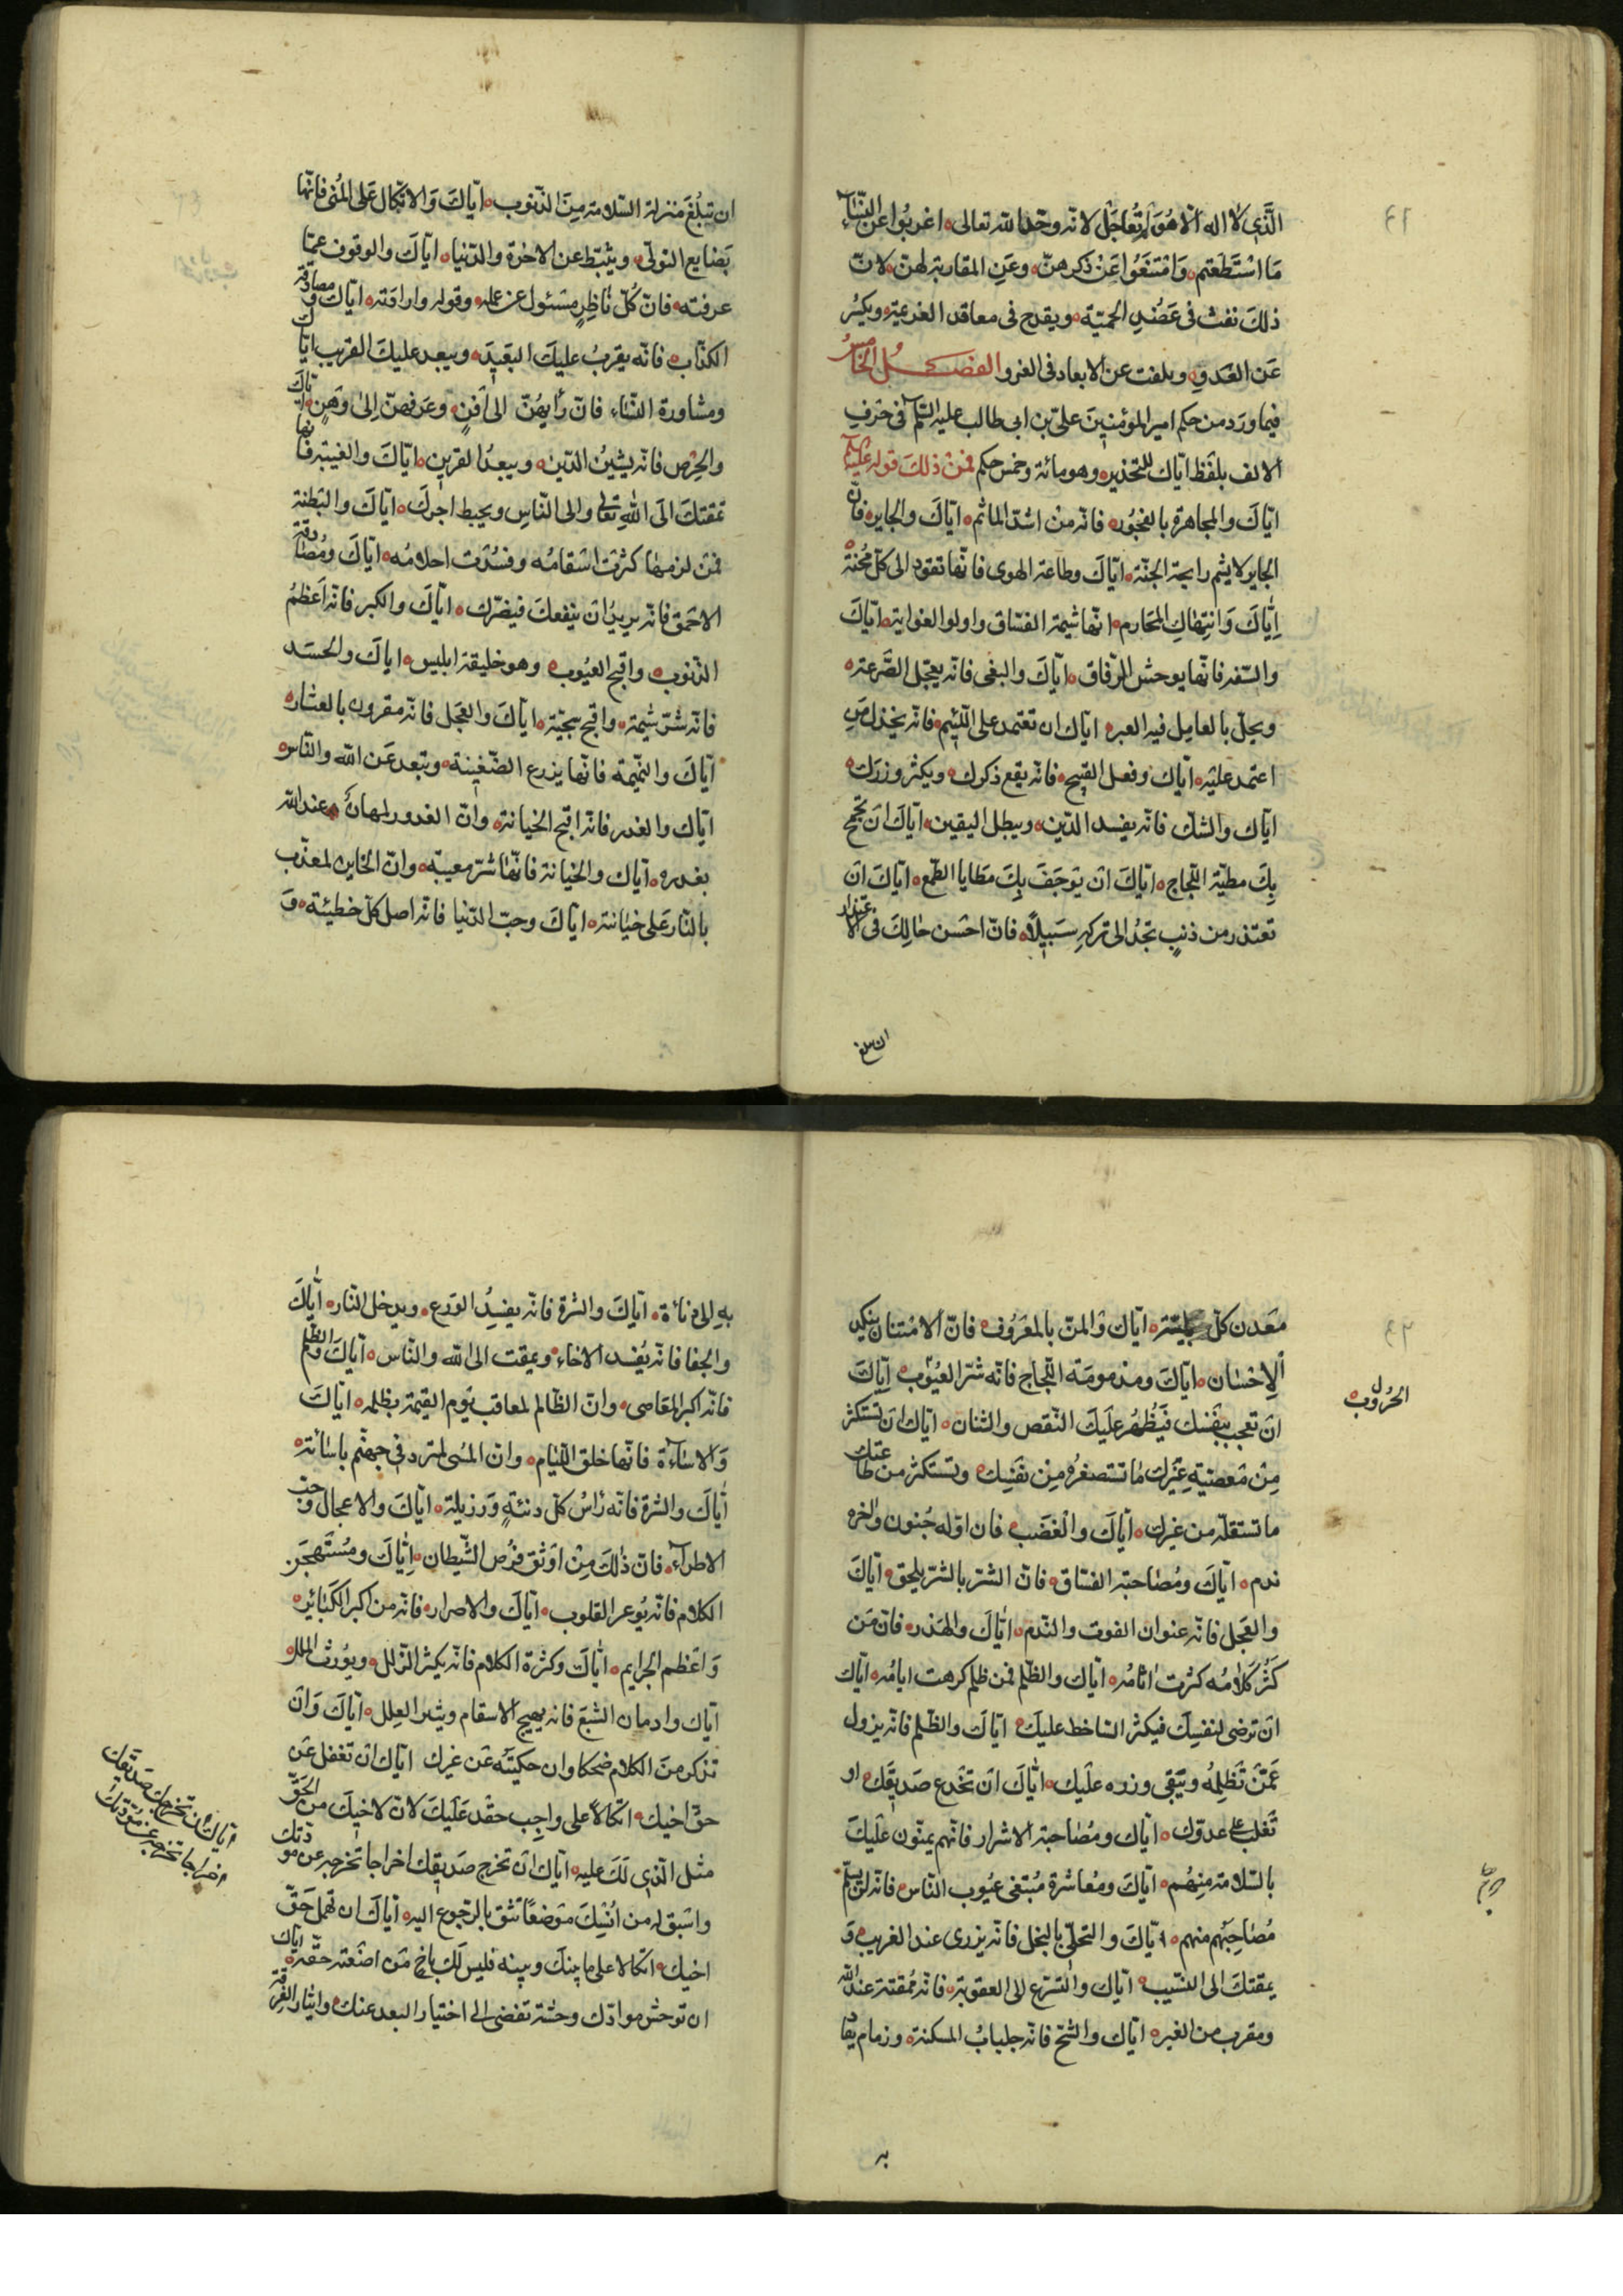 الَّذِي لا اله الا هُوَ لَمْ تُعَاجَل لانه وحد الله تعالى اعزبُوا عن النِّسَاءِ
مَا اسْتَطَعتم وَامْتَنَعُوا عَنْ ذكرهنّ وعَنِ المقاربة لهنّ لانّ
ذلكَ نفث فى عَضُدِ الحميّة ويقدح فى معاقد العزيمة ويكسرُ
عَن العَدوِ ويلفت عن الابعاد فى الغزو الفصــل الخامسُ
فيما ورَد من حكم امير المؤمنينَ علىّ بن ابى طالب عليه السّلم فى حَرفِ
الالف بلفَظ ايّاك للتحذيره وهو مائة وخمس حكم فمَنْ ذلكَ قوله عليه السّلم
ايّاكَ والمجاهرة بالفجُور فانّه منْ اشدّ الماثم ايّاكَ والجايره فانّ
الجاير لا يشم رايحة الجنّة ايّاكَ وطاعة الهوى فانّها تقود الى كلّ مُحنة
اِيّاكَ وَانتِهَاك المحَارم انّها شيمة الفسّاق واولو الغواية ايّاكَ
والسّفه فانّها يوحش الرّفاق ايّاكَ والبغى فانّه يعجّل الصَّرعة
ويحلّ بالعامِل فيه العبره ايّاك ان تعتمد على اللّئِيم فانّه يخذل مَن
اعتمد عليْه ايّاك وفعل القبيح فانّه يقبح ذكرك ويكثر وزرَك
ايّاك والشكّ فانّه يفسد الدّين ويبطل اليقين ايّاكَ انْ تجمح
بِكَ مطيّة اللّجاج ايّاكَ انْ يَوجَفَ بِكَ مَطايا الطّمع ايّاكَ ان
تعتذر من ذنبٍ تجدُ الى تركهِ سَبيلاً فانّ احْسَن حَالِكَ فى الاعتذار
ان تبلغ
ان تبلُغَ منزلة السّلامة مِنَ الذّنوب ايّاكَ وَالاتّكال عَلى المُنى فانّها
بَضايع النوكى ويثبّط عن الاخرة والدّنيا ايّاكَ والوقوف عمّا
عرفته فانّ كُلّ نَاظِرٍ مسْئول عن عمله وقوله وارادته ايّاك ومصادقة
الكذّاب فانّه يقرّبُ عليكَ البَعيدَ ويبعد عليكَ القريب ايّاك
ومشاورة النّساء فانّ رأيهُنّ الى اَفَنٍ وعَزمهنّ اِلىٰ وَهَنٍ ايّاكَ
والحِرْص فانّه يشينُ الدّين ويبعدُ القرين ايّاكَ والغيبة فانّها
تمقتكَ الَى اللهِ تعالى والى النّاسِ ويحبط اجرَكَ ايّاكَ والبَطنة
فمَن لزمهَا كثرت اسْقامُه وفسُدَت احلامُه ايّاكَ ومُصادقة
الاحمَق فانّه يريدُ انْ ينفعكَ فيضرّك ايّاكَ والكبر فانّه اَعَظمُ
الذّنوب واقبح العيُوب وهو خليقة ابليس اياكَ والحسَد
فانّه شرّ شيمة واقبح سجيّة ايّاكَ والعَجل فانّه مقرون بالعثار
ايّاكَ والنّميمة فانّها يزرع الضّغِينة وتبعد عَن الله والنّاس
ايّاك والغدر فانّه اقبح الخيانة وانّ الغدور لمهان عند الله
بغدره ايّاك والخيانة فانّهَا شرّ معيبة وانّ الخاين لمعذّب
بالنّار عَلى خيَانته ايّاكَ وحبّ الدّنيا فانّه اصل كلّ خطيئة وَ
مَعَدن كلّ بليّة ايّاك وَالمنّ بالمعَرُوف فانّ الامْتنان ينكد
الاِحْسَان ايّاكَ ومذمومَة اللّجاج فانّه شرّ العيُوب اِيّاكَ
الحُرُوب
انْ تعجب بنَفسك فيَظهرُ علَيكَ النّقص والشنان ايّاك انْ تستكثر
مِنْ مَعصيَةِ غَيْرك مَا تستصغرُه مِن نفَسِك وتستكثر من طَاعتك
ما تستقلّه من غيرك ايّاكَ والْغَضَب فان اوّله جُنون واٰخره
ندم ايّاكَ ومُصَاحبة الفسّاق فانّ الشرّ بالشرّ يلحق ايّاكَ
والعَجل فانّه عنوان الفوت والنّدم ايّاكَ والهَذر فانّ مَن
كَثُر كَلامُه كثرت اثامُه ايّاك والظّلم فمن ظلم كرهت ايامُه ايّاك
انْ ترضى لنفسِكَ فيكثر السّاخط عليكَ ايّاكَ والظلم فانّه يزول
عَمّن تَظَلِمُه ويَبَقى وزره علَيك ايّاكَ انْ تخْدع صَديقَك او
تَغلب على عدوّك ايّاك ومُصَاحبة الاشرار فانّهم يمنّون عَلَيكَ
بالسّلامة مِنهُم ايّاكَ ومعُاشرة مُتبَغى عيُوب النّاس فانّه لن يسْلم
مُصَاحِبُهم منهم ايّاكَ والتحلّى بالبخل فانّه يزرى عند الغريب وَ
يمقتكَ الى النسّيب ايّاك والتسّرع الى العقوبة فانّه مُمَقتة عند الله
ومقرب من الغير ايّاك والشحّ فانّه جلبابُ المسكنة وزمام يقاد
به
بهِ اِلى دنائة ايّاكَ والشره فانّه يفسِدُ الوَرَع ويدخل النّار ايّاكَ
والجفا فانّه يُفسد الاخاء ويمقت الى الله والنّاس ايّاكَ والظلم
فانّه اكبر المعَاصى وانّ الظّالم لمعاقب يَوم القيٰمة بظلمه ايّاكَ
وَالاسَاءة فانّها خلق اللّيَام وانّ المسُى لمتردّ فى جهنّم باسَائته
ايّاكَ والشره فانّه رَاسُ كلّ دنيّةٍ وَرَزيلة ايّاكَ والاعجاب وحبّ
الاطراء فانّ ذٰلكَ مِنْ اوَثَق فرُص الشّيطان ايّاكَ ومُسْتَهجَن
الكلام فانّه يُوغر القلوب ايّاكَ والاصرار فانّه من اكبر الكَبَائر
وَاعَظم الجرايم ايّاكَ وكثرة الكلام فانّه يكثر الزّلل ويوُرث الملل
ايّاك وادمان الشبَع فانه يهيج الاسقام ويثير العِلل ايّاكَ وَانْ
تذكر منَ الكلام ضحكا وان حكيتَه عَن غيرك ايّاك انْ تغفل عَن
حقّ اخيك اتكالاً على واجِب حقّك عَلَيكَ لانّ لاخيكَ من الحَقّ
مثل الّذِى لَكَ عليه ايّاك انْ تخرج صَديقك اخراجا تخرجه عن مودّتك
واسْتبق له من اُنْسِكَ مَوضعًا تثق بالرّجوع اليه ايّاكَ ان تهمل حَقّ
اخيك اتّكالا على ما بينكَ وبينه فليس لَكَ باخٍ مَن اضَعته حقّه ايّاك
ان توحش موادّك وحشة تفضى الى اختيار البعد عنك وايثار الفرقة
ايّاك ان تخرج صَديقك
اخراجا تخرجه عن مَودّتك